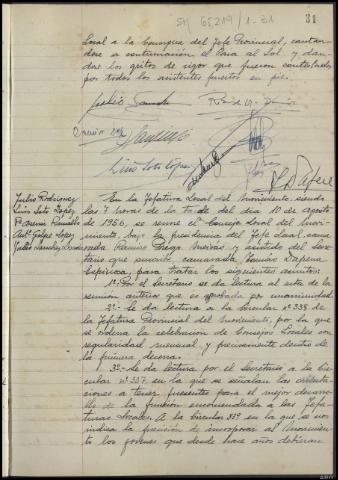 SH 65219/1-31
31
Local a la Consigna del Jefe Provincial, cantan-
dose a continuación el Cara al Sol y dan-
dose los gritos de rigor que fueron contestados
por todos los asistentes puestos en pie.
Lino Soto López
Julio Rodriguez
Lino Soto López
Ramiro
Antº Golpe López
Julio Sanchez
En la Jefatura Local del Movimiento siendo
las 7 horas de la tarde del día 10 de agosto
de 1956, se reune el Consejo Local del Movi-
miento bajo la presidencia del Jefe Local cama-
rada Ramiro Praga y asistido del Secre-
tario que suscribe camarada Tomás Dapena
Espiñeira, para tratar los siguientes asuntos:
1º: Por el Secretario se da lectura al acta de la
sesión anterior que es aprobada por unanimidad.
2º: Se da lectura a la circular nº 338 de
la Jefatura Provincial del Movimiento, por la que
se ordena la celebración de Consejos Locales con
regularidad mensual, y precisamente dentro de
la primera decena.
3º: Se da lectura por el Secretario a la Cir-
cular nº 337, en la que se señalan las orienta-
ciones a tener presentes para el mejor desarro-
llo de la función encomendada a las Jefa-
turas Locales. A la Circular 339 en la que se nos
indica la precisión de incorporar al Movimien-
to los jovenes que desde hace años debieran